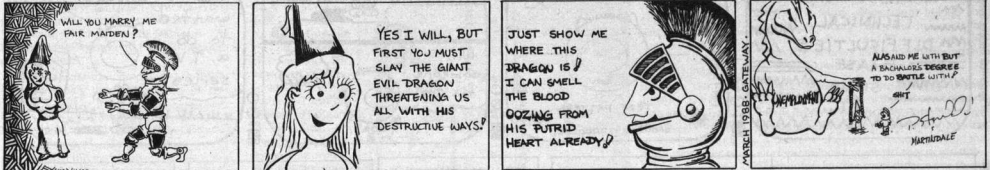 WILL YOU MARRY ME
FAIR MAIDEN?
YES I WILL, BUT
FIRST YOU MUST
SLAY THE GIANT
EVIL DRAGON
THREATENING US
ALL WITH HIS
DESTRUCTIVE WAYS!
JUST SHOW ME
WHERE THIS
DRAGON IS!
I CAN SMELL
THE BLOOD
OOZING FROM
HIS PUTRID
HEART ALREADY!
MARCH 1988 - GATEWAY.
UNEMPLOYMENT
ALAS AND ME WITH BUT
A BACHALOR'S DEGREE
TO DO BATTLE WITH!
SHIT
MARTINDALE